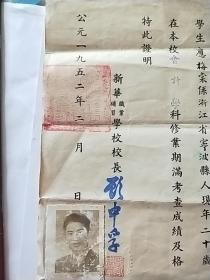 學生應梅棠係浙江省寧波縣人現年二十歲
在本校會計學科修業期滿考查成績及格
特此證明
新華職業補習學校校長
顧中孚
公元一九五二年二月 日